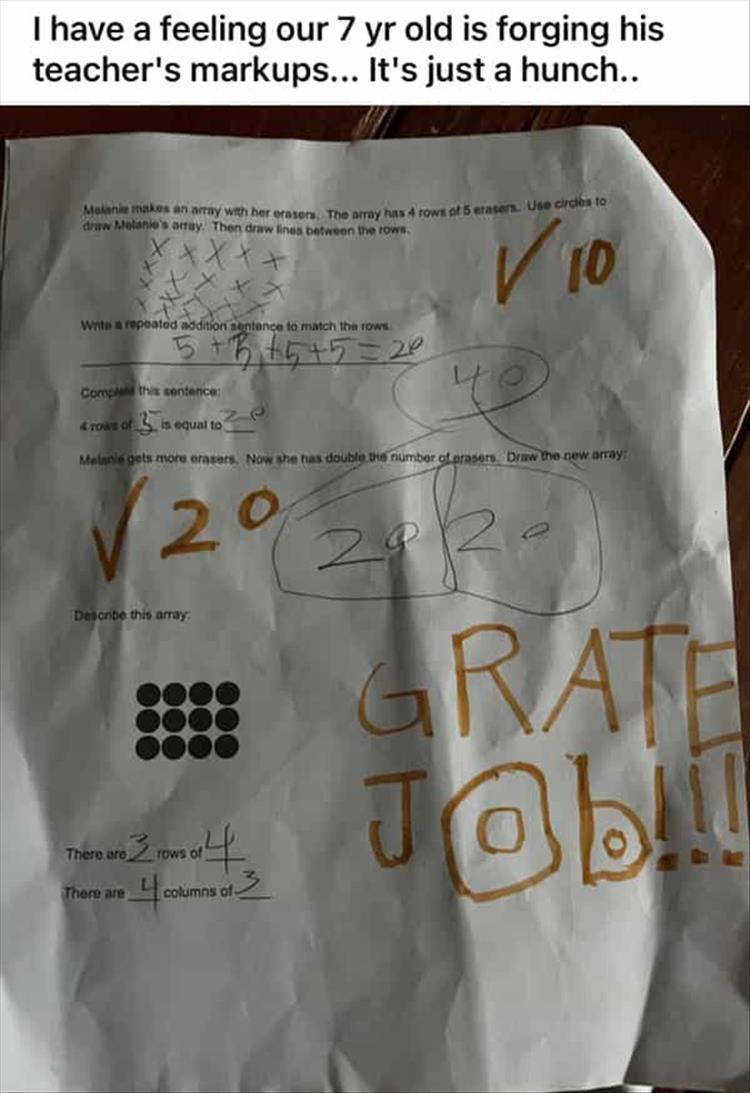 I have a feeling our 7 yr old is forging his
teacher's markups... It's just a hunch..
Melanie makes an array with her erasers. The array has 4 rows of 5 erasers. Use circles to
draw Melanie's array. Then draw lines between the rows.
√ 10
Write a repeated addition sentence to match the rows.
5+5+5+5=20
40
Complete this sentence:
4 rows of 5 is equal to 20
Melanie gets more erasers. Now she has double the number of erasers. Draw the new array:
√ 20
20 20
Describe this array:
GRATE
JOb!!!
There are 3 rows of 4
There are 4 columns of 3